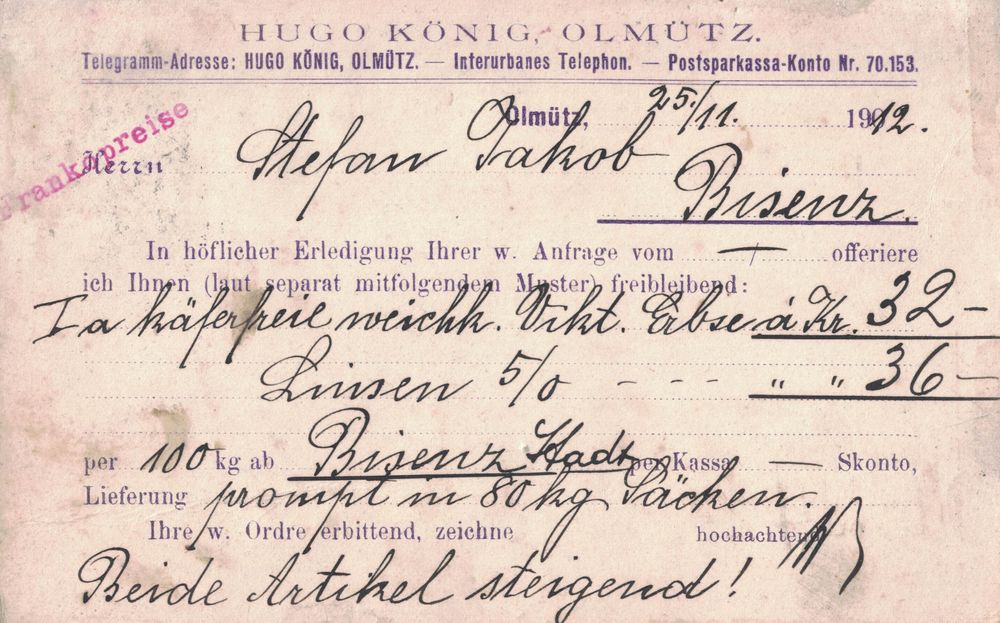 HUGO KÖNIG, OLMÜTZ.
Telegramm-Adresse: HUGO KÖNIG, OLMÜTZ. — Interurbanes Telephon. — Postsparkassa-Konto Nr. 70.153.
Frankopreise
Olmütz, 25./11. 1912.
Herrn Stefan Jakob
Bisenz.
In höflicher Erledigung Ihrer w. Anfrage vom — offeriere
ich Ihnen (laut separat mitfolgendem Muster) freibleibend:
Ia käferfreie weichk. Vikt. Erbse á Kr. 32-
Linsen 5/0 - - - " " 36-
per 100 kg ab Bisenz Stadt per Kassa — Skonto,
Lieferung prompt in 80 kg Säcken.
Ihre w. Ordre erbittend, zeichne hochachtend
Beide Artikel steigend!